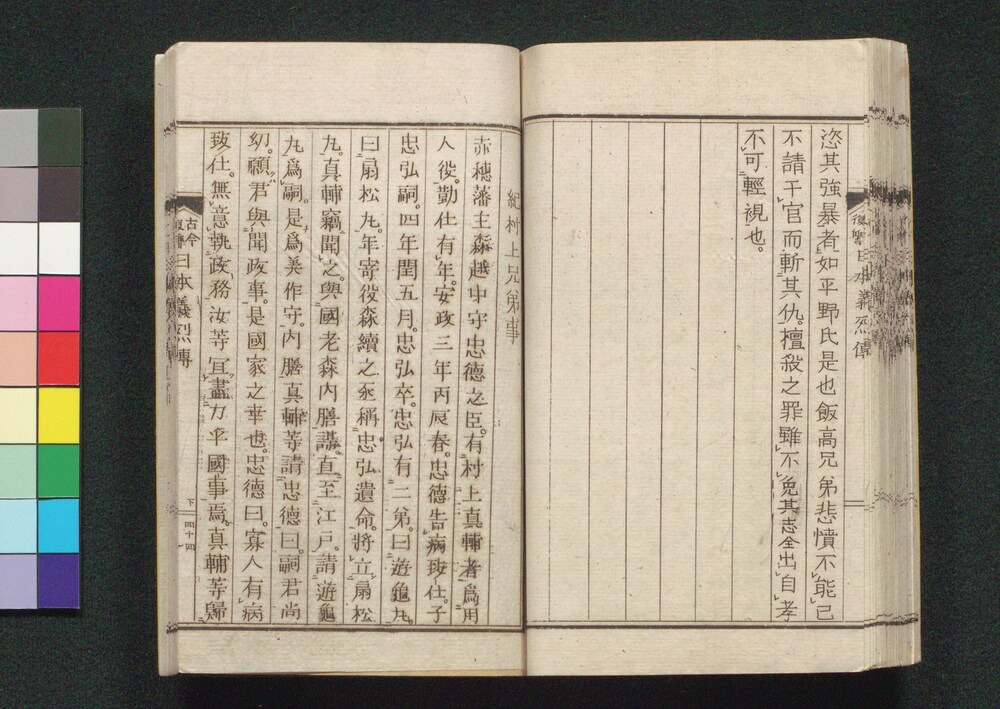 恣其強暴者如平野氏是也飯高兄弟悲憤不能已
不請于官而斬其仇。擅殺之罪雖不免其志全出自孝
不可輕視也。
復讐日本義烈傳
紀村上兄弟事
赤穗藩主森越中守忠德之臣。有村上真輔者爲用
人役。勤仕有年。安政三年丙辰春。忠德告病致仕。子
忠弘嗣。四年閏五月。忠弘卒。忠弘有二弟。曰遊龜丸。
曰扇松丸。年寄役森續之丞稱忠弘遺命。將立扇松
丸。真輔竊聞之。與國老森内膳議。直至江戸。請遊龜
丸爲嗣。是爲美作守。内膳真輔等請忠德曰。嗣君尚
幼。願君與聞政事。是國家之幸也。忠德曰。寡人有病
致仕。無意執政務汝等宜盡力乎國事焉。真輔等歸
古今復讐日本義烈傳
下
四十四